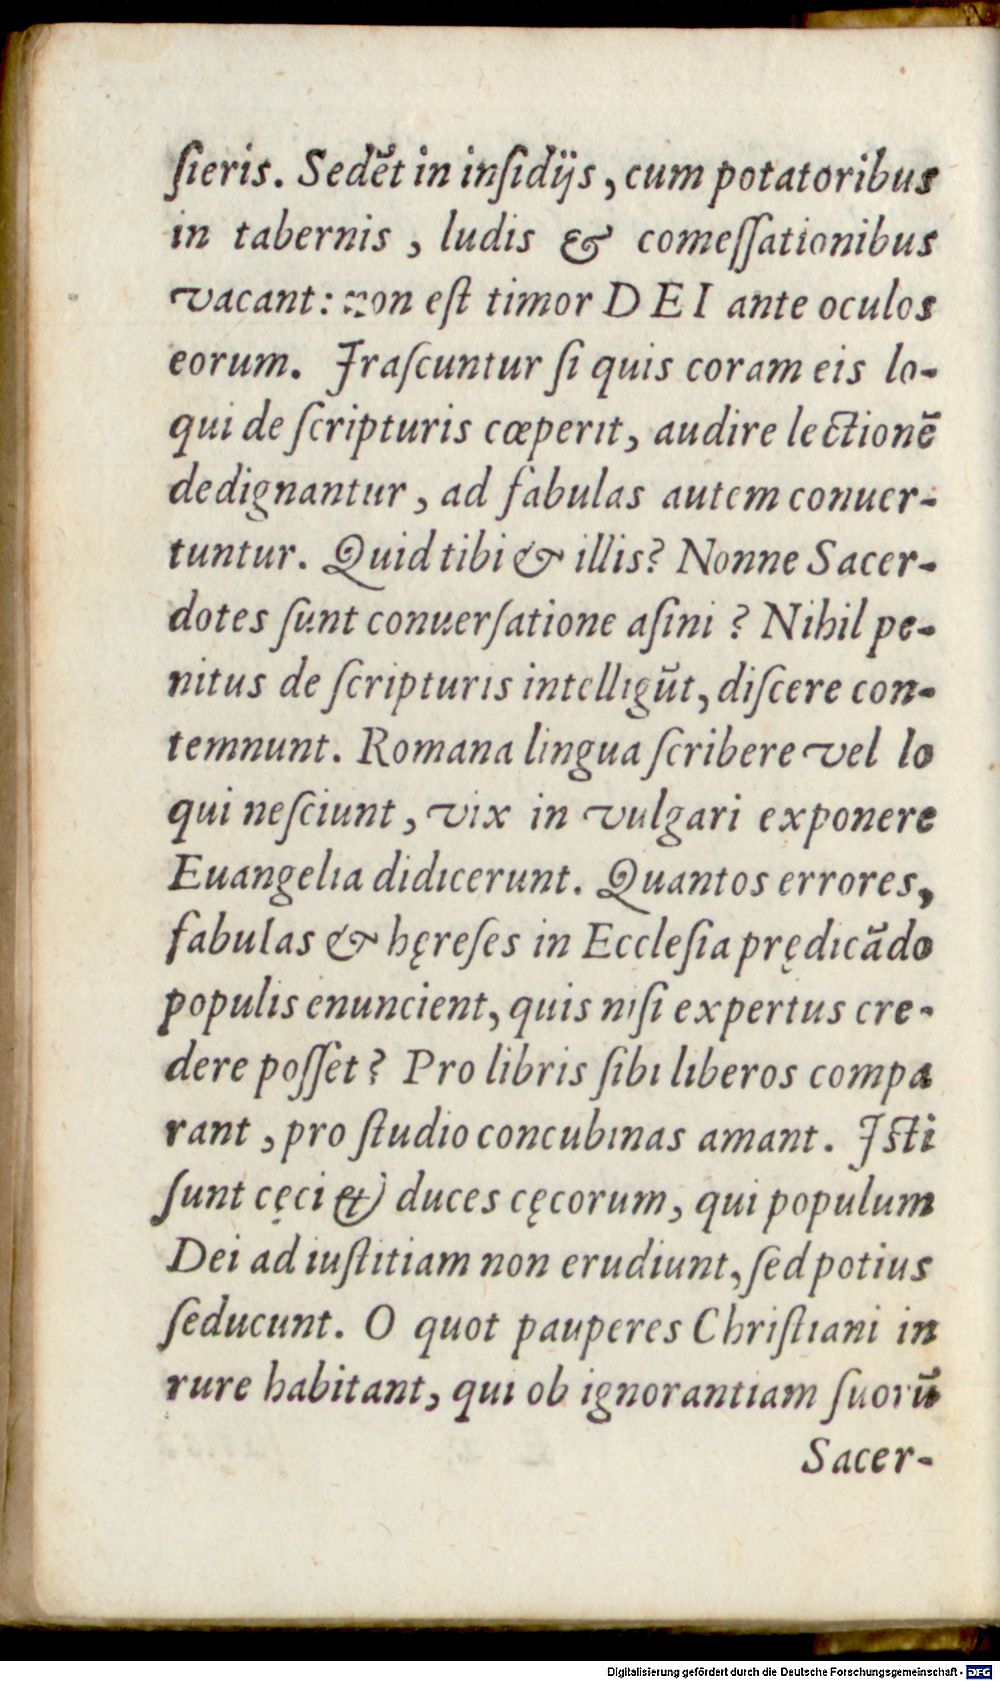 ſieris. Sedēt in inſidijs, cum potatoribus
in tabernis, ludis & comeſſationibus
vacant: non eſt timor DEI ante oculos
eorum. Iraſcuntur ſi quis coram eis lo-
qui de ſcripturis cœperit, audire lectionē
dedignantur, ad fabulas autem conuer-
tuntur. Quid tibi & illis? Nonne Sacer-
dotes ſunt conuerſatione aſini? Nihil pe-
nitus de ſcripturis intelligūt, diſcere con-
temnunt. Romana lingua ſcribere vel lo
qui neſciunt, vix in vulgari exponere
Euangelia didicerunt. Quantos errores,
fabulas & hęreſes in Eccleſia prędicādo
populis enuncient, quis niſi expertus cre-
dere poſſet? Pro libris ſibi liberos compa
rant, pro ſtudio concubinas amant. Iſti
ſunt cęci & duces cęcorum, qui populum
Dei ad iuſtitiam non erudiunt, ſed potius
ſeducunt. O quot pauperes Chriſtiani in
rure habitant, qui ob ignorantiam ſuorū
Sacer-
Digitalisierung gefördert durch die Deutsche Forschungsgemeinschaft - DFG